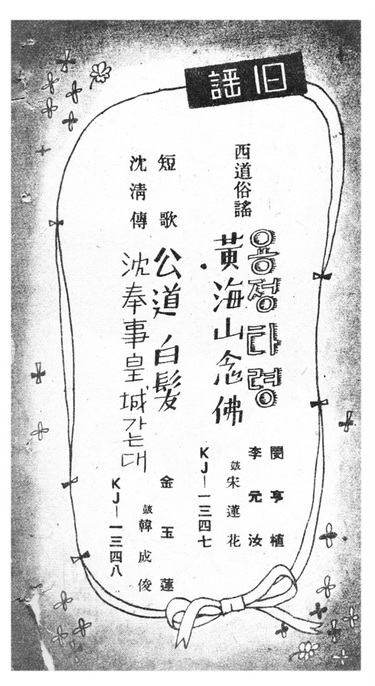 旧謠
西道俗謠
용정타령
黃海山念佛
閔亨植
李元汝
鼓宋蓮花
KJ―一三四七
短歌
公道白髮
沈淸傳
沈奉事皇城가는대
金玉蓮
鼓韓成俊
KJ―一三四八